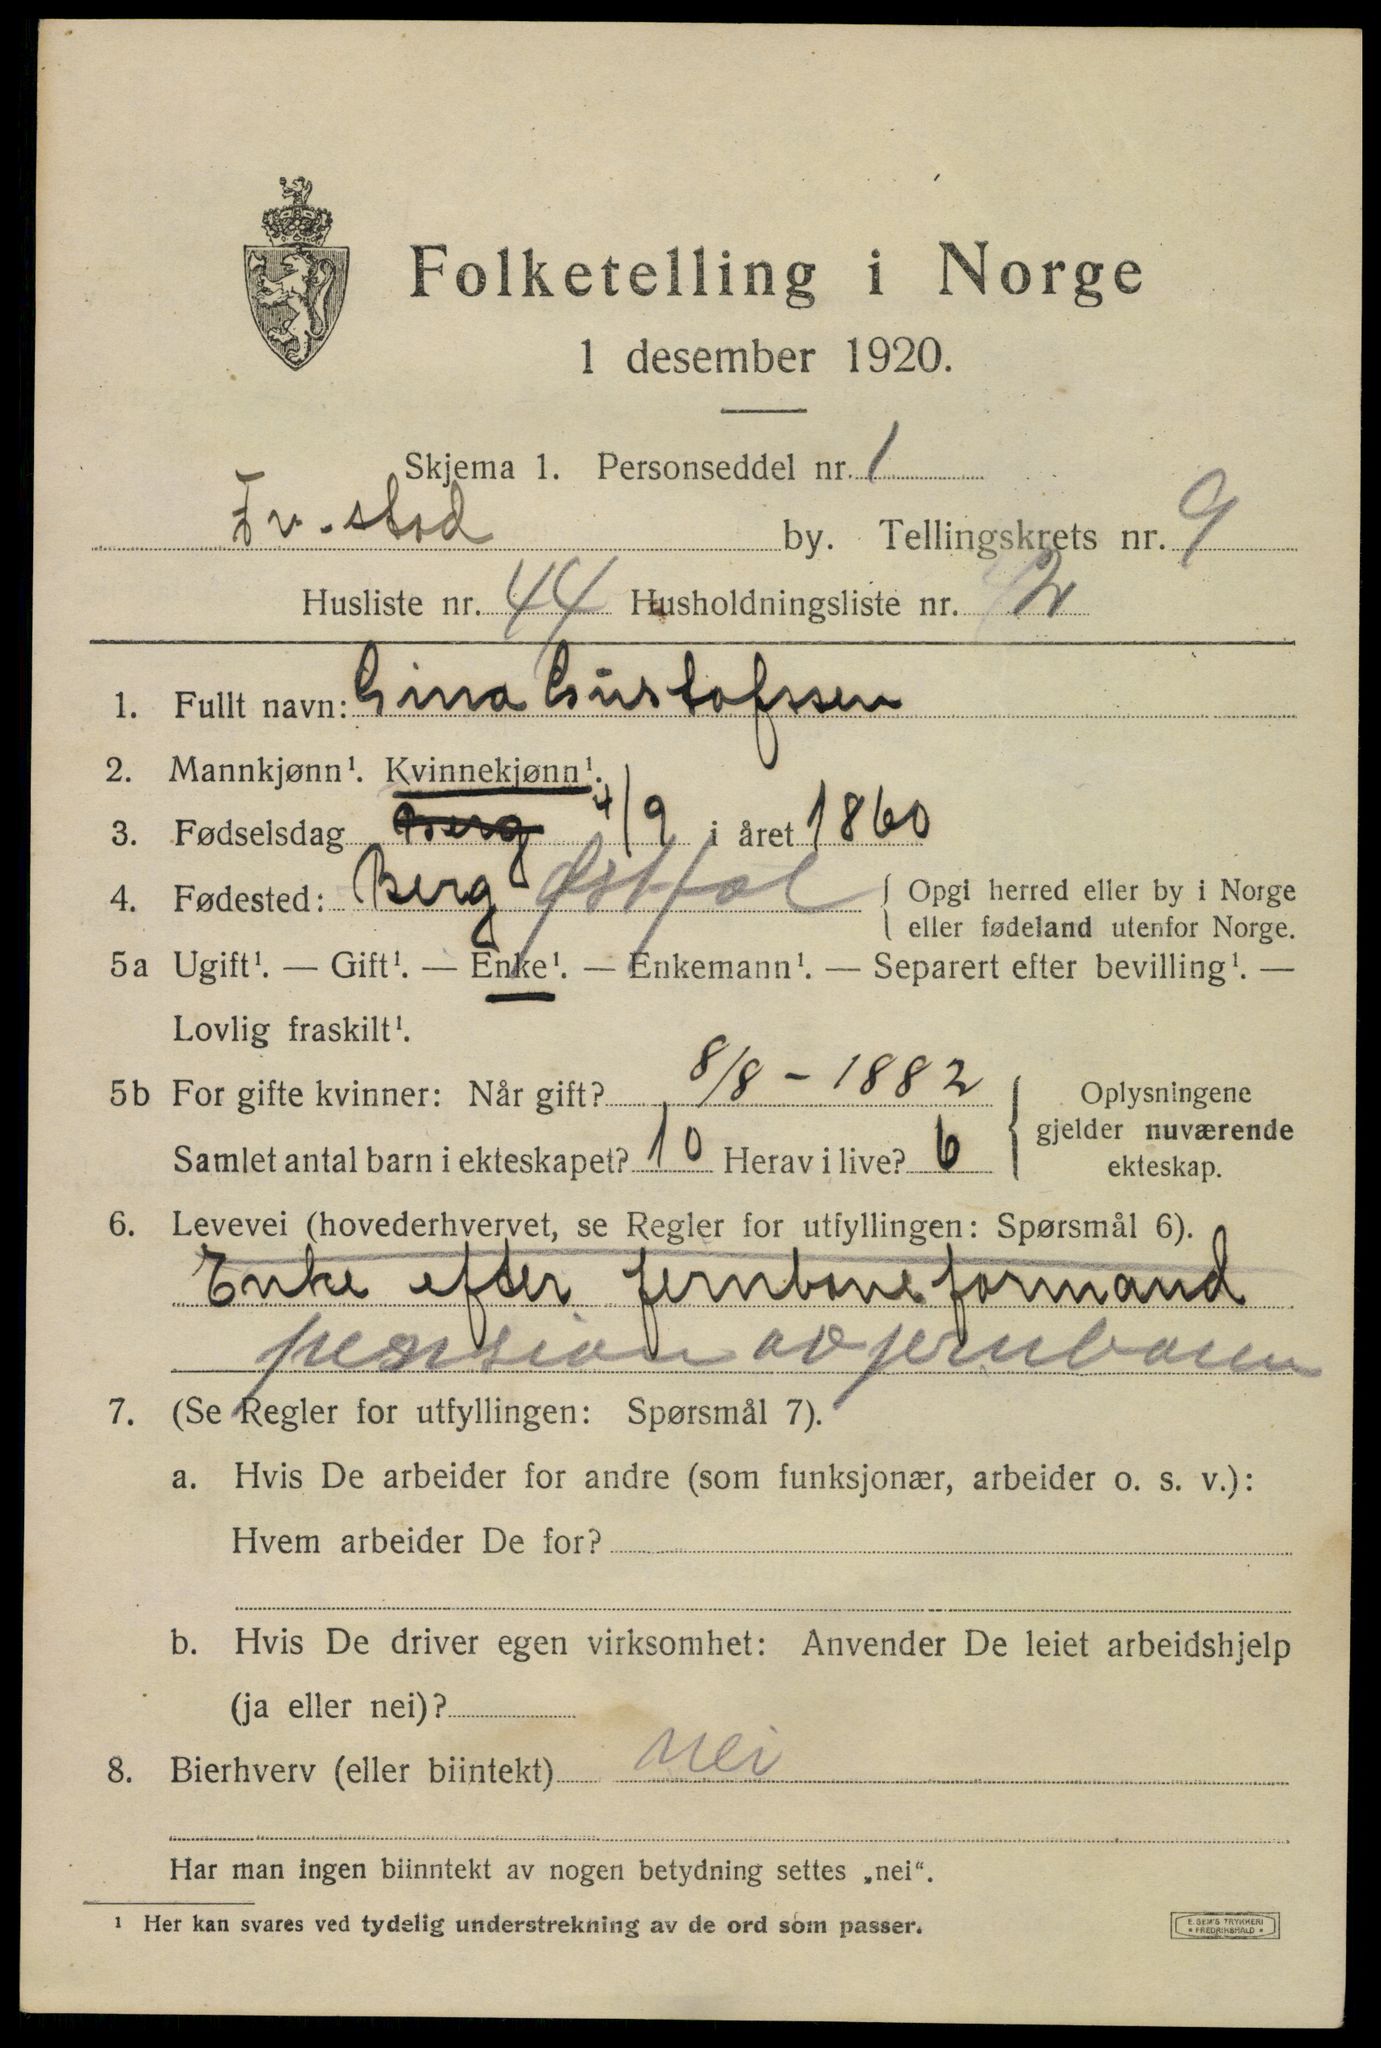 Folketelling i Norge
1 desember 1920.
Skjema 1. Personseddel nr. 1
Fr.stad by. Tellingskrets nr. 9
Husliste nr. 44 Husholdningsliste nr. 2
1. Fullt navn: Gina Gustafssen
2. Mannkjønn¹. Kvinnekjønn¹.
3. Fødselsdag Berg 4/9 i året 1860
4. Fødested: Berg Østfol { Opgi herred eller by i Norge
eller fødeland utenfor Norge.
5a Ugift¹. — Gift¹. — Enke¹. — Enkemann¹. — Separert efter bevilling¹. —
Lovlig fraskilt¹.
5b For gifte kvinner: Når gift? 8/8 - 1882
Samlet antal barn i ekteskapet? 10 Herav i live? 6
Oplysningene
gjelder nuværende
ekteskap.
6. Levevei (hovederhvervet, se Regler for utfyllingen: Spørsmål 6).
Enke efter jernbaneformand
pension av jernbanen
7. (Se Regler for utfyllingen: Spørsmål 7).
a. Hvis De arbeider for andre (som funksjonær, arbeider o. s. v.):
Hvem arbeider De for?
b. Hvis De driver egen virksomhet: Anvender De leiet arbeidshjelp
(ja eller nei)?
8. Bierhverv (eller biintekt) nei
Har man ingen biinntekt av nogen betydning settes „nei“.
¹ Her kan svares ved tydelig understrekning av de ord som passer.
E. SEM'S TRYKKERI
* FREDRIKSHALD *